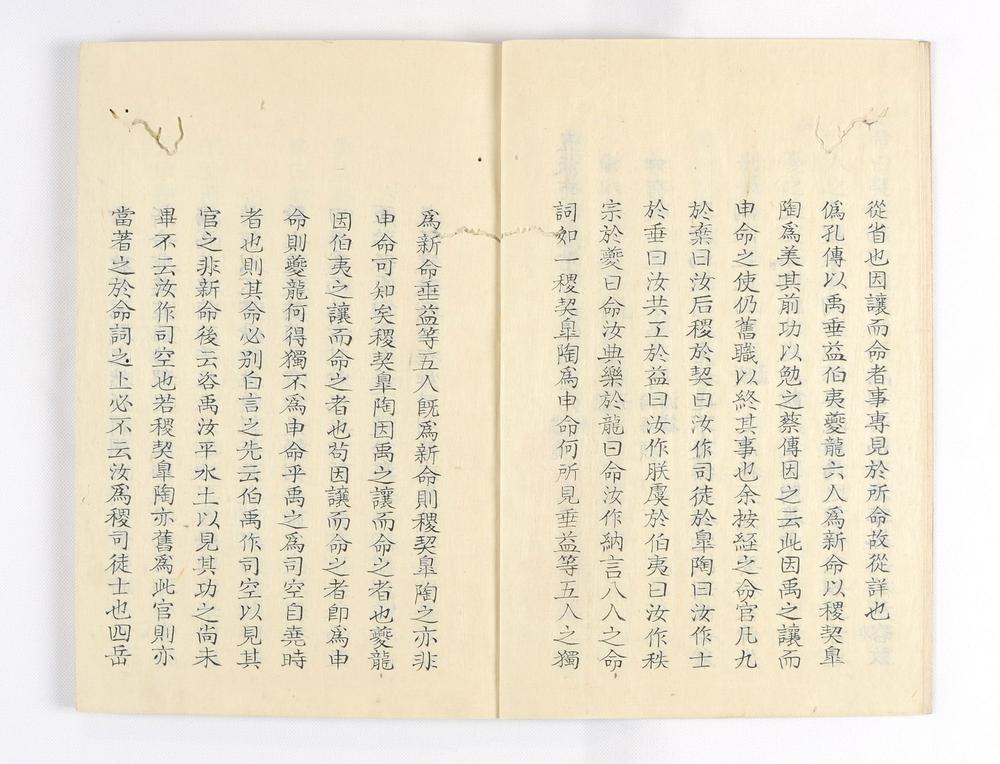 從省也因讓而命者事專見於所命故從詳也
僞孔傳以禹垂益伯夷夔龍六人爲新命以稷契臯
陶爲美其前功以勉之蔡傳因之云此因禹之讓而
申命之使仍舊職以終其事也余按經之命官凡九
於棄曰汝后稷於契曰汝作司徒於臯陶曰汝作士
於垂曰汝共工於益曰汝作朕虞於伯夷曰汝作秩
宗於夔曰命汝典樂於龍曰命汝作納言八人之命
詞如一稷契臯陶爲申命何所見垂益等五人之獨
爲新命垂益等五人旣爲新命則稷契臯陶之亦非
申命可知矣稷契臯陶因禹之讓而命之者也夔龍
因伯夷之讓而命之者也苟因讓而命之者卽爲申
命則夔龍何得獨不爲申命乎禹之爲司空自堯時
者也則其命必别白言之先云伯禹作司空以見其
官之非新命後云咨禹汝平水土以見其功之尚未
畢不云汝作司空也若稷契臯陶亦舊爲此官則亦
當著之於命詞之上必不云汝爲稷司徒士也四岳